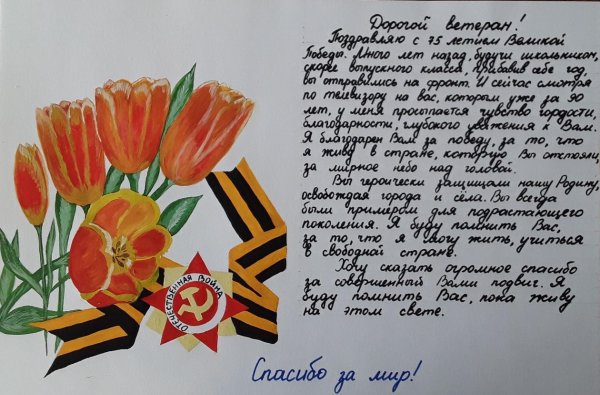 Дорогой ветеран!
Поздравляю с 75 летием Великой
Победы. Много лет назад, будучи школьником,
скорее выпускного класса, прибавив себе год,
вы отправились на фронт. И сейчас смотря
по телевизору на вас, которым уже за 90
лет, у меня просыпается чувство гордости,
благодарности, глубокого уважения к Вам.
Я благодарен Вам за победу, за то, что
я живу в стране, которую Вы отстояли,
за мирное небо над головой.
Вы героически защищали нашу Родину,
освобождая города и сёла. Вы всегда
были примером для подрастающего
поколения. Я буду помнить Вас,
за то, что я могу жить, учиться
в свободной стране.
Хочу сказать огромное спасибо
за совершенный Вами подвиг. Я
буду помнить Вас, пока живу
на этом свете.
ОТЕЧЕСТВЕННАЯ ВОЙНА
Спасибо за мир!